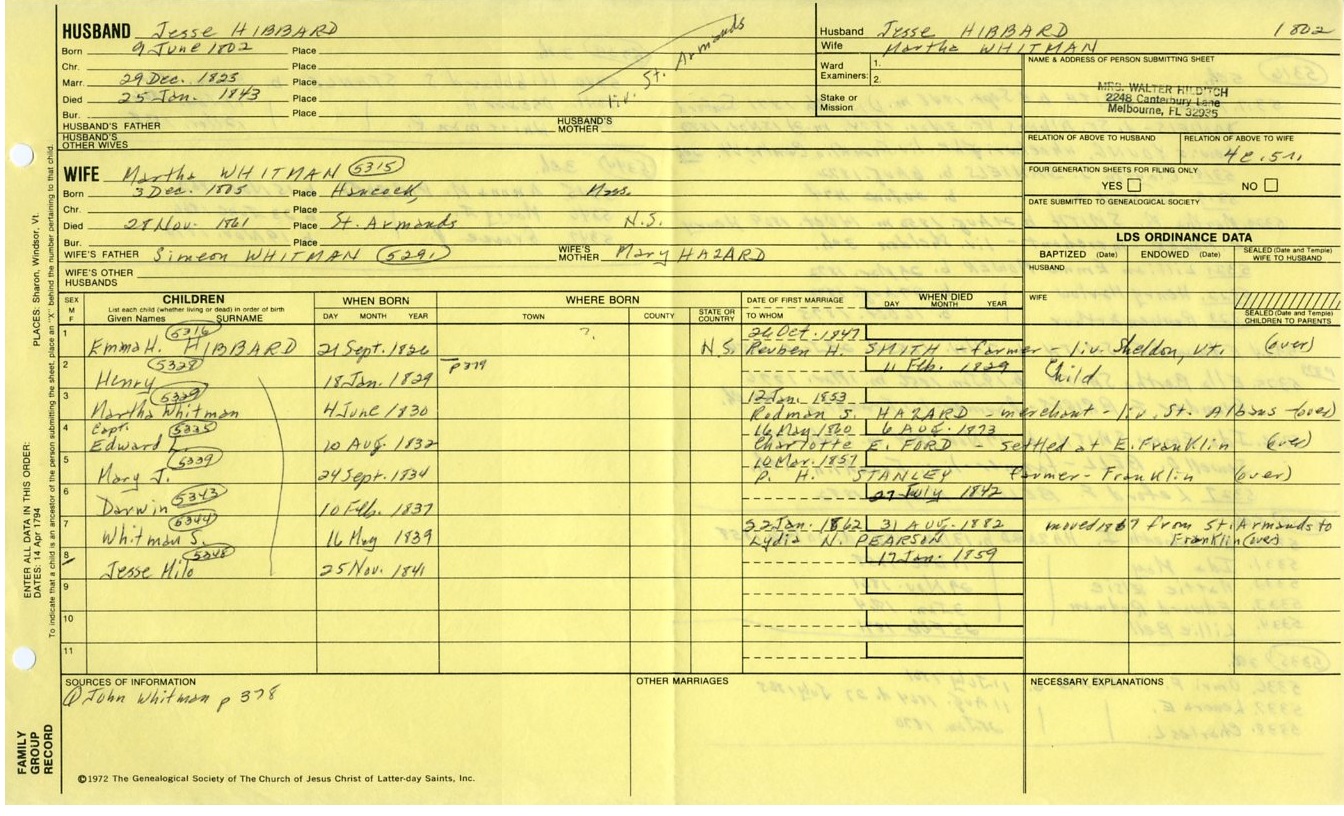 HUSBAND Jesse HIBBARD
Born 9 June 1802 Place
Chr. Place
Marr. 29 Dec. 1825 Place
Died 25 Jan. 1843 Place
Bur. Place
liv. St. Armands
HUSBAND'S FATHER
HUSBAND'S MOTHER
HUSBAND'S OTHER WIVES
Husband Jesse HIBBARD 1802
Wife Martha WHITMAN
Ward Examiners: 1.
2.
Stake or Mission
NAME & ADDRESS OF PERSON SUBMITTING SHEET
MRS. WALTER HILDITCH
2248 Canterbury Lane
Melbourne, FL 32935
RELATION OF ABOVE TO HUSBAND RELATION OF ABOVE TO WIFE
4c. 5r.
FOUR GENERATION SHEETS FOR FILING ONLY
YES NO
DATE SUBMITTED TO GENEALOGICAL SOCIETY
LDS ORDINANCE DATA
BAPTIZED (Date) ENDOWED (Date) SEALED (Date and Temple) WIFE TO HUSBAND
HUSBAND
WIFE
SEALED (Date and Temple) CHILDREN TO PARENTS
WIFE Martha WHITMAN 5315
Born 3 Dec. 1805 Place Hancock, Mass.
Chr. Place
Died 28 Nov. 1861 Place St. Armands N.S.
Bur. Place
WIFE'S FATHER Simeon WHITMAN (5291)
WIFE'S MOTHER Mary HAZARD
WIFE'S OTHER HUSBANDS
SEX M F
CHILDREN
List each child (whether living or dead) in order of birth
Given Names SURNAME
WHEN BORN
DAY MONTH YEAR
WHERE BORN
TOWN COUNTY STATE OR COUNTRY
DATE OF FIRST MARRIAGE
TO WHOM
WHEN DIED
DAY MONTH YEAR
1 5316 ? 26 Oct. 1847
Emma H. HIBBARD 21 Sept. 1826 N.S. Reuben H. SMITH - farmer - liv. Sheldon, Vt. (over)
2 5328 p 379 11 Feb. 1829 Child
Henry 18 Jan. 1829
3 5329 12 Jan. 1853
Martha Whitman 4 June 1830 Redman S. HAZARD - merchant - liv. St. Albans (over)
4 Capt. 5335 16 May 1860 6 Aug. 1873
Edward L. 10 Aug 1832 Charlotte E. FORD - settled at E. Franklin (over)
5 5339 10 Mar. 1857
Mary J. 24 Sept. 1834 P. H. STANLEY farmer - Franklin (over)
6 5343 27 July 1842
Darwin 10 Feb. 1837
7 5344 22 Jan. 1862 31 Aug. 1882 moved 1867 from St. Armands to
Whitman S. 16 May 1839 Lydia N. PEARSON Franklin (over)
8 5348 17 Jan. 1859
Jesse Milo 25 Nov. 1841
9
10
11
SOURCES OF INFORMATION
① John Whitman p 378
OTHER MARRIAGES
NECESSARY EXPLANATIONS
©1972 The Genealogical Society of The Church of Jesus Christ of Latter-day Saints, Inc.
FAMILY GROUP RECORD
ENTER ALL DATA IN THIS ORDER:
DATES: 14 Apr 1794
PLACES: Sharon, Windsor, Vt.
To indicate that a child is an ancestor of the person submitting the sheet, place an "X" behind the number pertaining to that child.